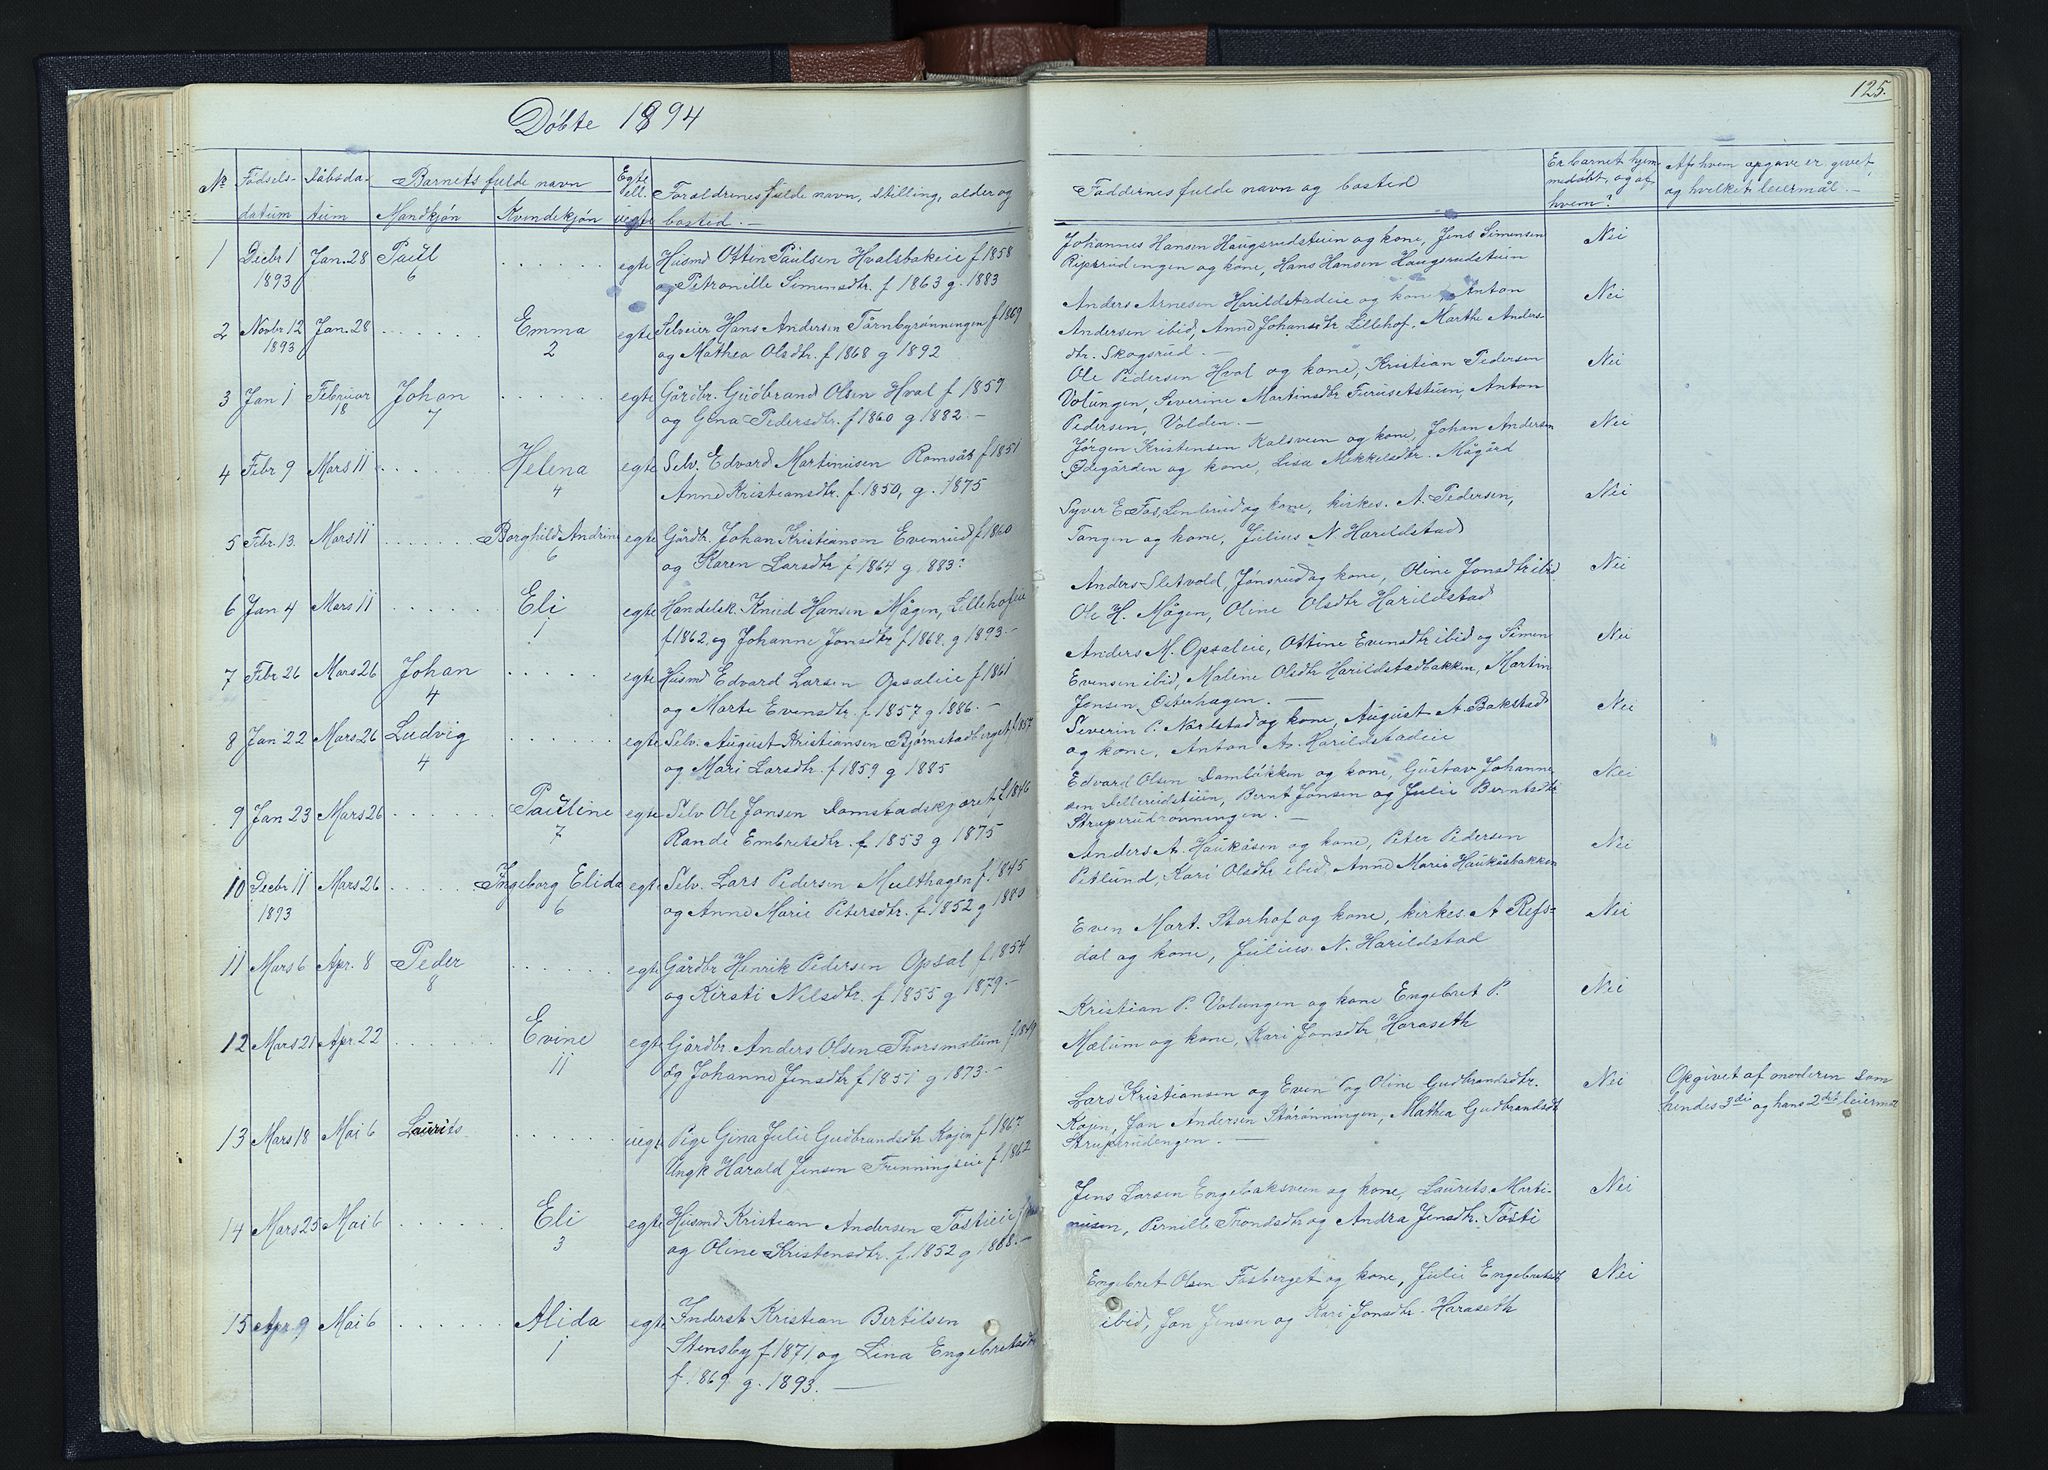 Døbte 1894
125.
No Fødsels- datum Dåbsda- tum Barnets fulde navn Mandkjøn Kvindekjøn Egte ell. uegte Forældrenes fulde navn, stilling, alder og bosted.-
Faddernes fulde navn og bosted Er barnet hjem- medøbt, og af hvem? Af hvem opgave er givet, og hvilket leiermål.-
1 Decbr 1 1893 Jan. 28 Paul 6 egte Husmd Ottin Paulsen Hvalsbakeie f 1858
og Petronille Simensdtr. f 1863 g. 1883
Johannes Hansen Haugsrudstuen og kone, Jens Simensen
Ripsrudengen og kone, Hans Hansen Haugsrudstuen
Nei
2 Novbr 12 1893 Jan. 28 Emma 2 egte Selveier Hans Andersen Tårnbyrønningen f 1869
og Mathea Olsdtr. f 1868 g 1892
Anders Arnesen Harildstadeie og kone, Anton
Andersen ibid, Anne Johansdtr Lillehof, Marthe Anders-
dtr. Skogsrud.-
Nei
3 Jan 1 Februar 18 Johan 7 egte Gårdbr. Gudbrand Olsen Hval f 1857
og Gina Pedersdtr. f 1860 g 1882.-
Ole Pedersen Hval og kone, Kristian Pedersen
Volungen, Severine Martinsdtr Furusetstuen, Anton
Pedersen, Volden.-
Nei
4 Febr 9 Mars 11 Helena 4 egte Selv. Edvard Martinusen Romsås f 1851
Anne Kristiansdtr. f. 1850, g. 1875
Jørgen Kristensen Kalsveen og kone, Johan Andersen
Ødegården og kone, Lisa Mikkelsdtr. Mågård
Nei
5 Febr. 13. Mars 11 Borghild Andrine 6 egte Gårdbr. Johan Kristiansen Evenrud f 1860
og Karen Larsdtr f 1864 g 1883.
Syver E. Fos, Lenberud og kone, kirkes. A. Pedersen,
Tangen og kone, Julius N Harildstad
Nei
6 Jan 4 Mars 11 Eli 1 egte Handelsk. Knud Hansen Mågen, Lillehofeie
f 1862 og Johanne Jonsdtr f 1868. g 1893.-
Anders Sletvold Jønsrud og kone, Oline Jonsdtr ibid
Ole H. Mågen, Oline Olsdtr Harildstad
Nei
7 Febr 26 Mars 26 Johan 4 egte Husmd Edvard Larsen Opsaleie f 1861
og Marte Evensdtr. f 1857 g 1886.-
Anders M. Opsaleie, Ottine Evensdtr ibid og Simen
Evensen ibid, Maline Olsdtr Harildstadbakken, Martin
Jensen Østerhagen.-
Nei
8 Jan 22 Mars 26 Ludvig 4 egte Selv. August Kristiansen Bjørnstadberget f 1857
og Mari Larsdtr. f 1859 g 1885
Severin P. Narlstad og kone, August A. Bakstad
og kone, Anton A. Harildstadeie
Nei
9 Jan 23 Mars 26 Pauline 7 egte Selv Ole Jonsen Damstadskjæret f 1846
Rande Embretsdtr. f 1853 g 1875
Edvard Olsen Damløkken og kone, Gustav Johanne-
sen Dellerudstuen, Bernt Jonsen og Julie Berntsdtr.
Struperudrønningen.-
Nei
10 Decbr 11 1893 Mars 26 Ingeborg Elida 6 egte Selv. Lars Pedersen Multhagen f 1845
og Anne Marie Petersdtr. f 1852 g 1880
Anders A. Haukåsen og kone, Peter Pedersen
Petlund, Kari Olsdtr ibid, Anne Marie Haukåsbakken
Nei
11 Mars 6 Apr. 8 Peder 8 egte Gårdbr Henrik Pedersen Opsal f 1854
og Kirsti Nilsdtr. f 1855 g 1879.-
Even Mart. Storhof og kone, kirkes. A Refs-
dal og kone, Julius N. Harildstad
Nei
12 Mars 21 Apr 22 Evine 11 egte Gårdbr. Anders Olsen Thorsmælum f 1849
og Johanne Jensdtr f 1851 g 1873.-
Kristian P. Volungen og kone Engebret P.
Mælum og kone, Kari Jonsdtr Haraseth
Nei
13 Mars 18 Mai 6 Laurits uegte Pige Gina Julie Gudbrandsdtr Kojen f 1867
Ungk Harald Jensen Frenningseie f 1862
Lars Kristiansen og Even og Oline Gudbrandsdtr.
Kojen, Jon Andersen Størønningen, Mathea Gudbrandsdt
Struperudengen.-
Nei
Opgivet af moderen som
hendes 3di og hans 2det leiermål
14 Mars 25 Mai 6 Eli 3 egte Husmd Kristian Andersen Tostieie
og Oline Kristensdtr. f. 1852 g 1888.-
Jens Larsen Engebaksveen og kone, Laurits Marti-
nusen, Pernille Trondsdtr og Andra Jensdtr. Tosti
Nei
15 Apr 9 Mai 6 Alida 1 egte Inderst Kristian Bertilsen
Stensby f 1871 og Lina Engebretsdtr
f. 1869 g. 1893.-
Engebret Olsen Fosberget og kone, Julie Engebretsdt
ibid, Jon Jensen og Kari Jonsdtr. Haraseth
Nei